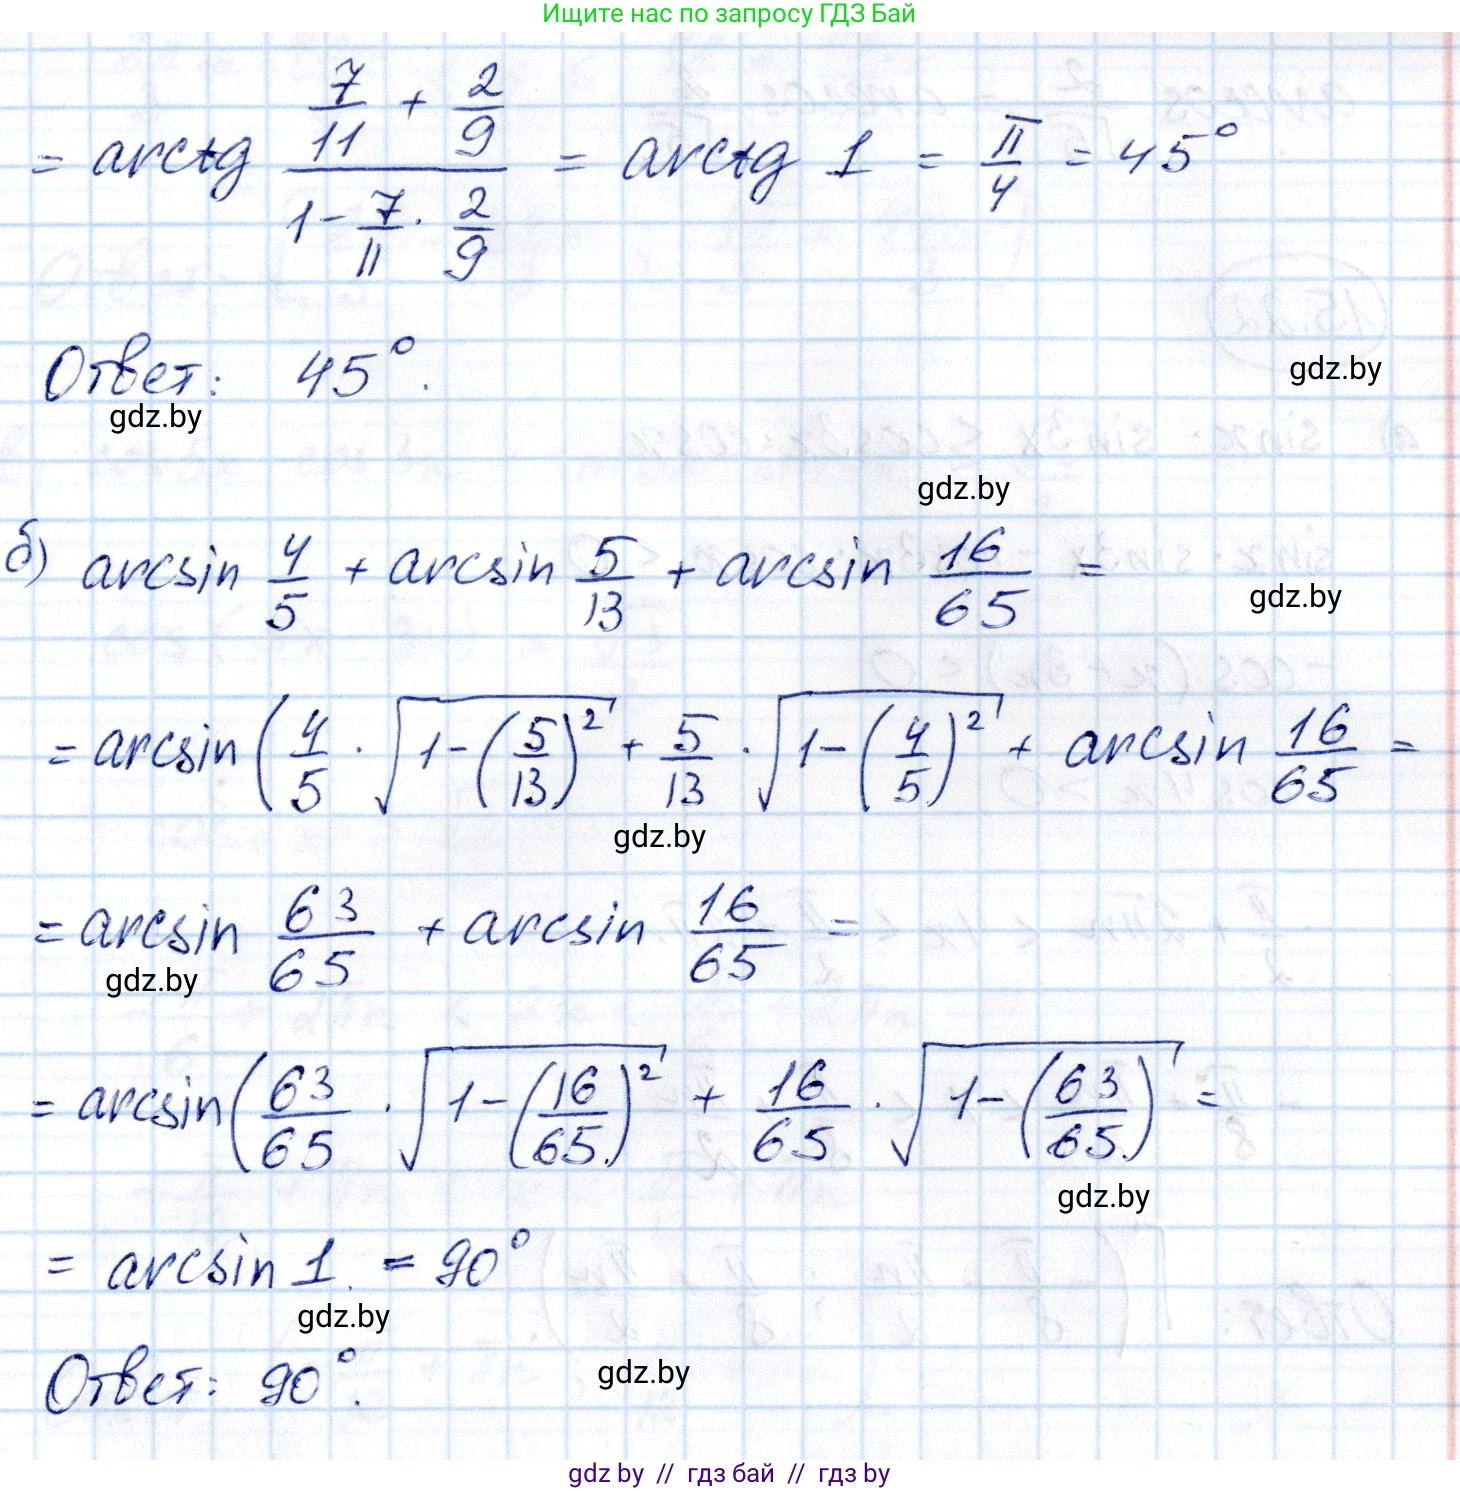 Ищите нас по запросу ГДЗ Бай
= arctg (7/11 + 2/9)/(1 - 7/11 · 2/9) = arctg 1 = π/4 = 45°
Ответ: 45°.
gdz.by
gdz.by
gdz.by
б) arcsin 4/5 + arcsin 5/13 + arcsin 16/65 =
gdz.by
= arcsin (4/5 · √(1-(5/13)²) + 5/13 · √(1-(4/5)²) + arcsin 16/65 =
gdz.by
= arcsin 63/65 + arcsin 16/65 =
gdz.by
= arcsin (63/65 · √(1-(16/65)²) + 16/65 · √(1-(63/65)²) =
gdz.by
= arcsin 1. = 90°
gdz.by
Ответ: 90°.
gdz.by
gdz by // гдз бай // gdz by